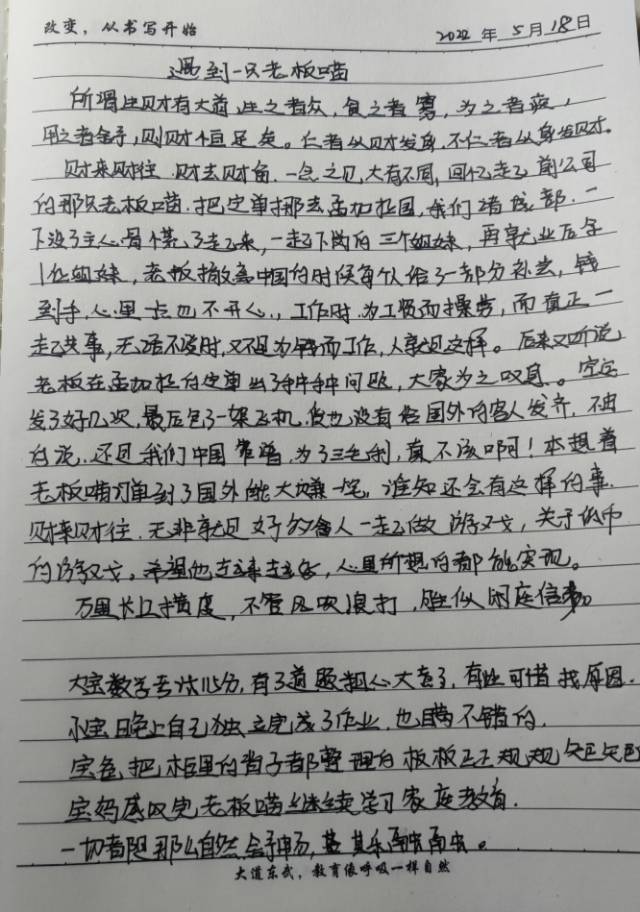 改变，从书写开始
2022年5月18日
遇到一只老板喵
所谓生财有大道 生之者众，食之者寡，为之者疾，
用之者舒，则财恒足矣。仁者以财发身，不仁者以身发财。
财来财往 财去财留，一念之见，大有不同，回忆走了前公司
的那只老板喵，把定单挪去孟加拉国，我们
下没了主人骨慌了起来，一起下岗的三个姐妹，再就业后学
个位姐妹，老板撤离中国的时候每个人给了一部分补贴，钱
到手，心里一点也不开心，工作时为工资而操劳，而真正一
起共事，无话不谈时，又不是为钱而工作，人就是这样。后来又听说
老板在孟加拉的定单出了种种问题，大家为之叹息。定定
发了好几次，最后包了一架飞机，货也没有给国外的客人发齐，不由
的说，还是我们中国靠谱，为了三毛利，真不该啊！本想着
老板喵订单到了国外能大赚一笔，谁知还会有这样的事
财来财往，无非就是好多人一起做游戏，关于纸币
的游戏。希望他去来去去，心里所想的都能实现。
万里长江横度，不管风吹浪打，胜似闲庭信步
大宝数学考试115分，有3道题粗心大意了，有些可惜找原因。
小宝晚上自己独立完成了作业，也蛮不错的，
宝爸把柜里的当子都整理的板板正正规规矩矩
宝妈感叹完老板喵继续学习家庭教育.
一切都是那么自然舒畅，甚其乐融融。
大道东武，教育像呼吸一样自然